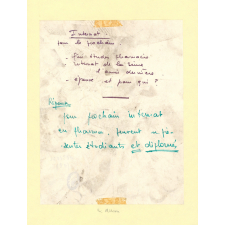 Internat
pour le prochain
- fin études pharmacie
internat de la Seine
l'année dernière
- épouse et pour qui ?
Réponse
pour prochain internat
en pharma, peuvent se pré-
senter étudiants et diplomés